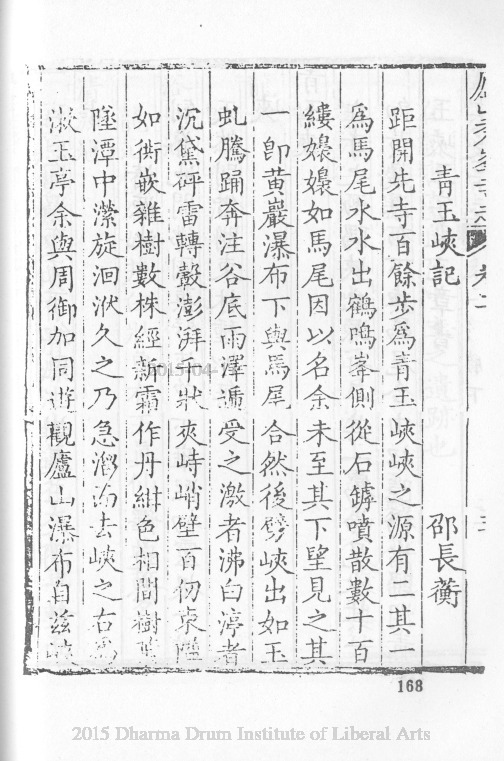 青玉峽記　　邵長蘅
距開先寺百餘步為青玉峽峽之源有二其一
為馬尾水水出鶴鳴峯側從石罅噴散數十百
縷嬝嬝如馬尾因以名余未至其下望見之其
一卽黃巖瀑布下與馬尾合然後劈峽出如玉
虬騰踊奔注谷底雨澤遞受之激者沸白渟者
沉黛砰雷轉轂澎湃千狀夾峙峭壁百仞東陲
如銜嵌雜樹數株經新霜作丹紺色相間樹葉
墜潭中瀠旋洄洑久之乃急溜而去峽之右為
漱玉亭余與周御加同遊觀廬山瀑布自茲峽
168
2015-04-
2015 Dharma Drum Institute of Liberal Arts